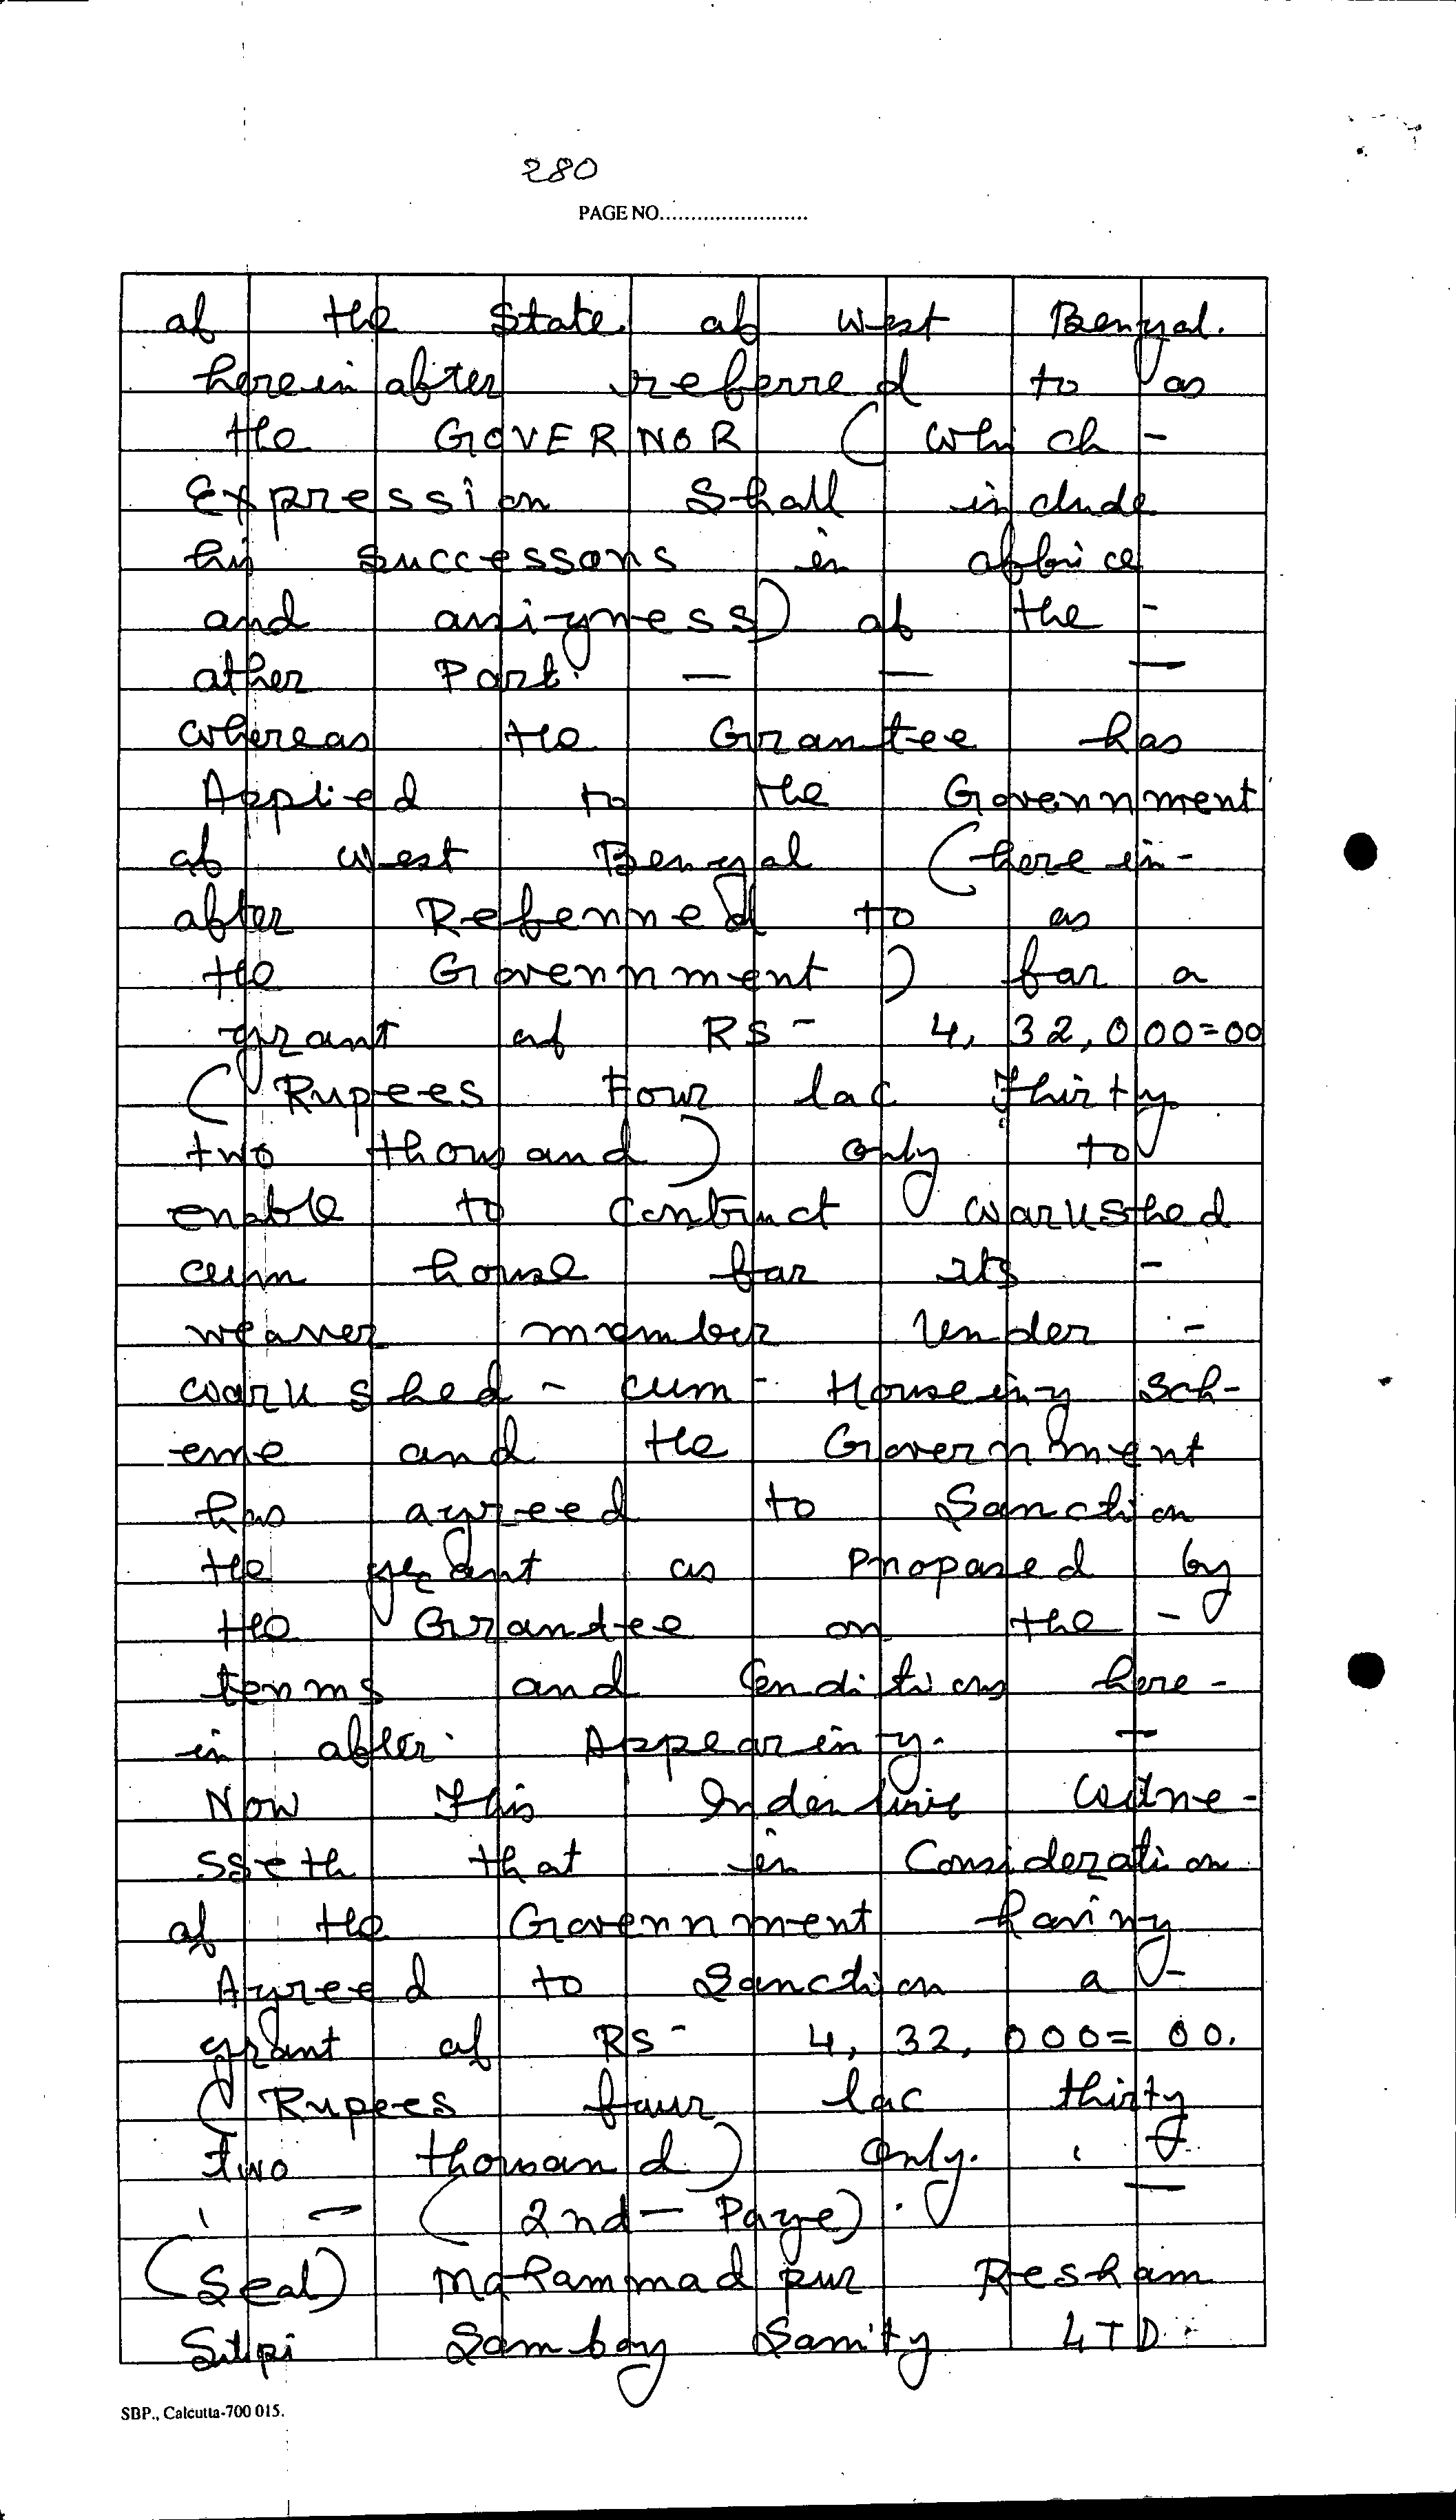 280
PAGE NO........................
of the State of West Bengal.
hereinafter referred to as
the GOVERNOR ( which -
Expression Shall include
his successors in office
and assigness) of the -
other Part. — — —
whereas the Grantee has
Applied to the Government
of West Bengal ( here in-
after Referred to as
the Government ) for a
grant of RS - 4, 32,000=00
( Rupees Four lac Thirty
two thousand ) only to
enable to Contruct workshed
cum house for its -
weaver member Under -
workshed - cum - Houseing Sch-
eme and the Government
has agreed to Sanction
the grant as proposed by
the Grantee on the -
terms and Conditions here -
in after Appearing. —
Now This Indenture Witne-
sseth that in Consideration
of the Government having
Agreed to Sanction a -
grant of RS - 4, 32, 000= 00.
( Rupees four lac thirty
two thousand ) Only.
— ( 2nd - Page) . —
(Seal) Mahammad pur Resham
Silpi Sambay Samity LTD
SBP., Calcutta-700 015.